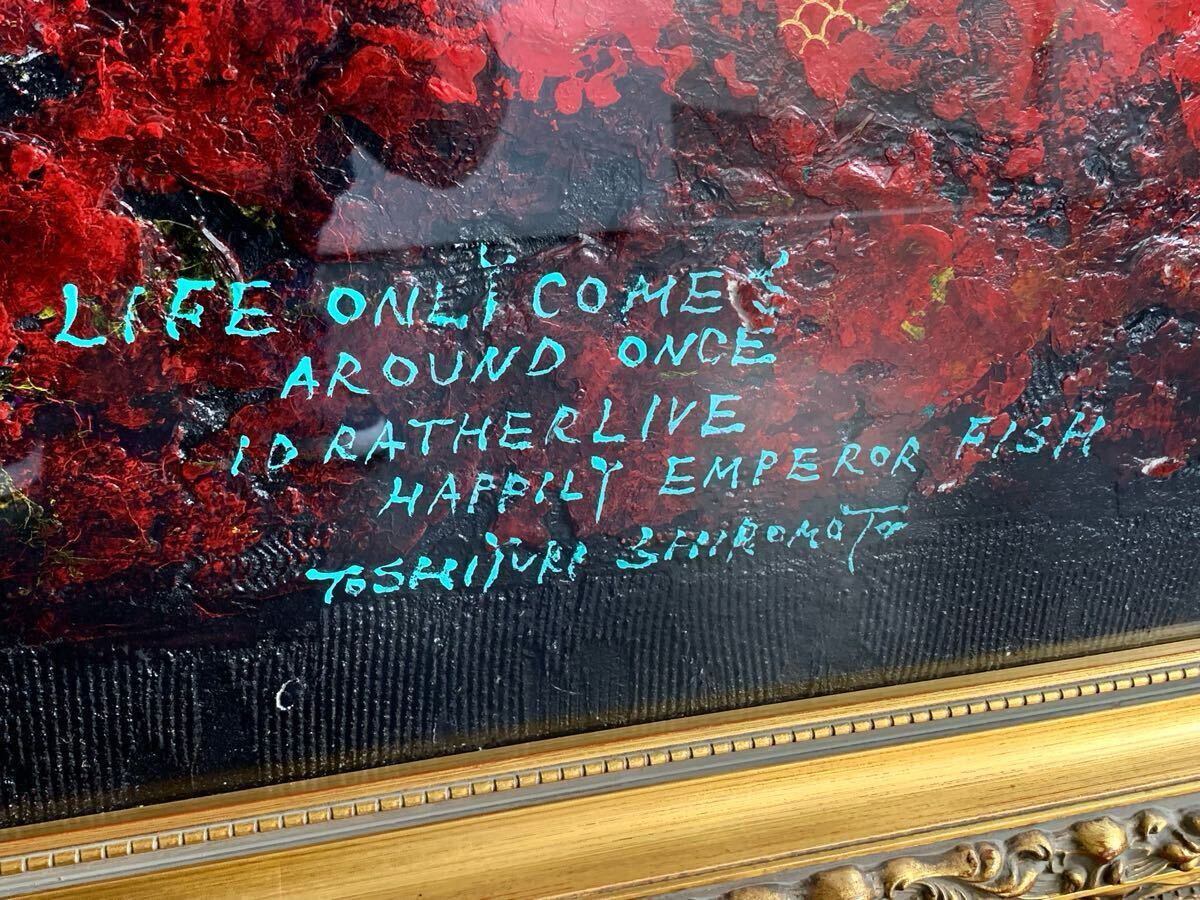 LIFE ONLY COMES
AROUND ONCE
ID RATHER LIVE
HAPPILY EMPEROR FISH
TOSHIYUKI SHIROMOTO